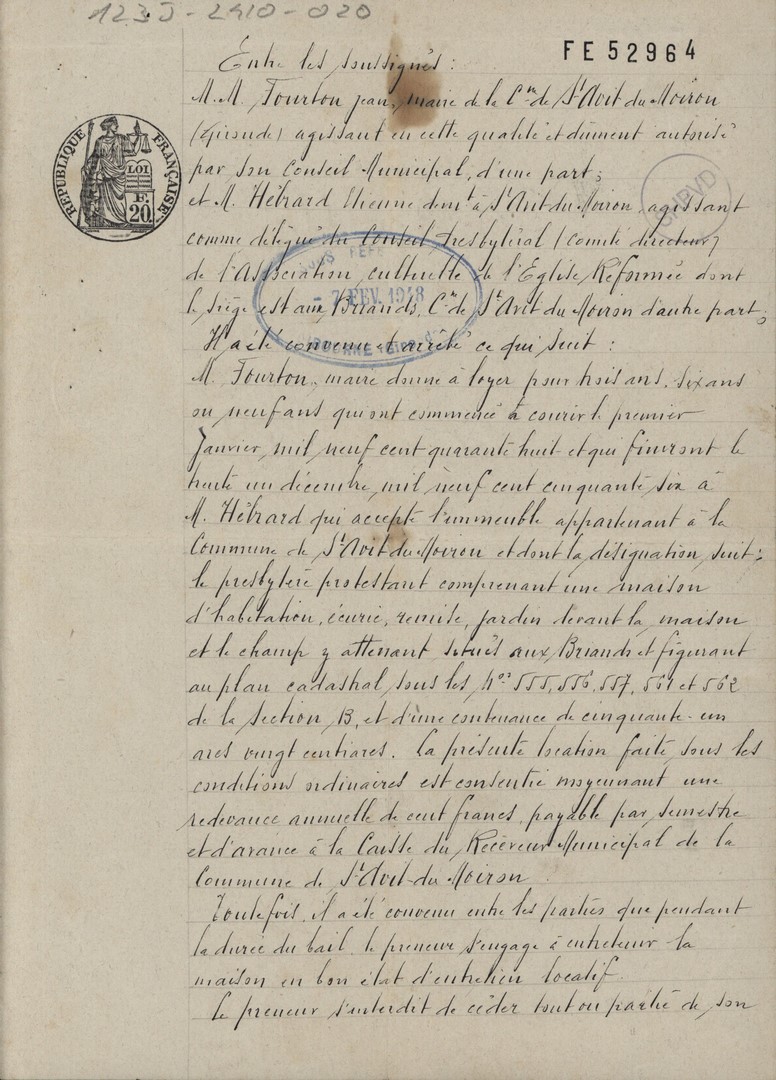 123J-2410-020
FE 52964
RÉPUBLIQUE FRANÇAISE
LOI
F.
20
Entre les soussignés :
M.M. Fourton Jean, maire de la Cne de St Avit du Moiron
(Gironde) agissant en cette qualité et dûment autorisé
par son Conseil Municipal, d'une part ;
et M. Hébrard Etienne demt à St Avit du Moiron, agissant
comme délégué du Conseil Presbytéral (Comité directeur)
de l'Association cultuelle de l'Eglise Réformée dont
le siège est aux Briands, Cne de St Avit du Moiron d'autre part ;
Il a été convenu et arrêté ce qui suit :
M. Fourton, maire donne à loyer pour trois ans, six ans
ou neuf ans qui ont commencé à courir le premier
Janvier mil neuf cent quarante huit et qui finiront le
trente un décembre mil neuf cent cinquante six à
M. Hébrard qui accepte l'immeuble appartenant à la
Commune de St Avit du Moiron et dont la désignation suit :
le presbytère protestant comprenant une maison
d'habitation, écurie, remise, jardin devant la maison
et le champ y attenant situés aux Briands et figurant
au plan cadastral sous les Nos 555, 556, 557, 561 et 562
de la section B, et d'une contenance de cinquante-un
ares vingt centiares. La présente location faite sous les
conditions ordinaires est consentie moyennant une
redevance annuelle de cent francs, payable par semestre
et d'avance à la Caisse du Receveur Municipal de la
Commune de St Avit-du Moiron.
Toutefois, il a été convenu entre les parties que pendant
la durée du bail, le preneur s'engage à entretenir la
maison en bon état d'entretien locatif.
Le preneur s'interdit de céder tout ou partie de son
- 7 FEV. 1948